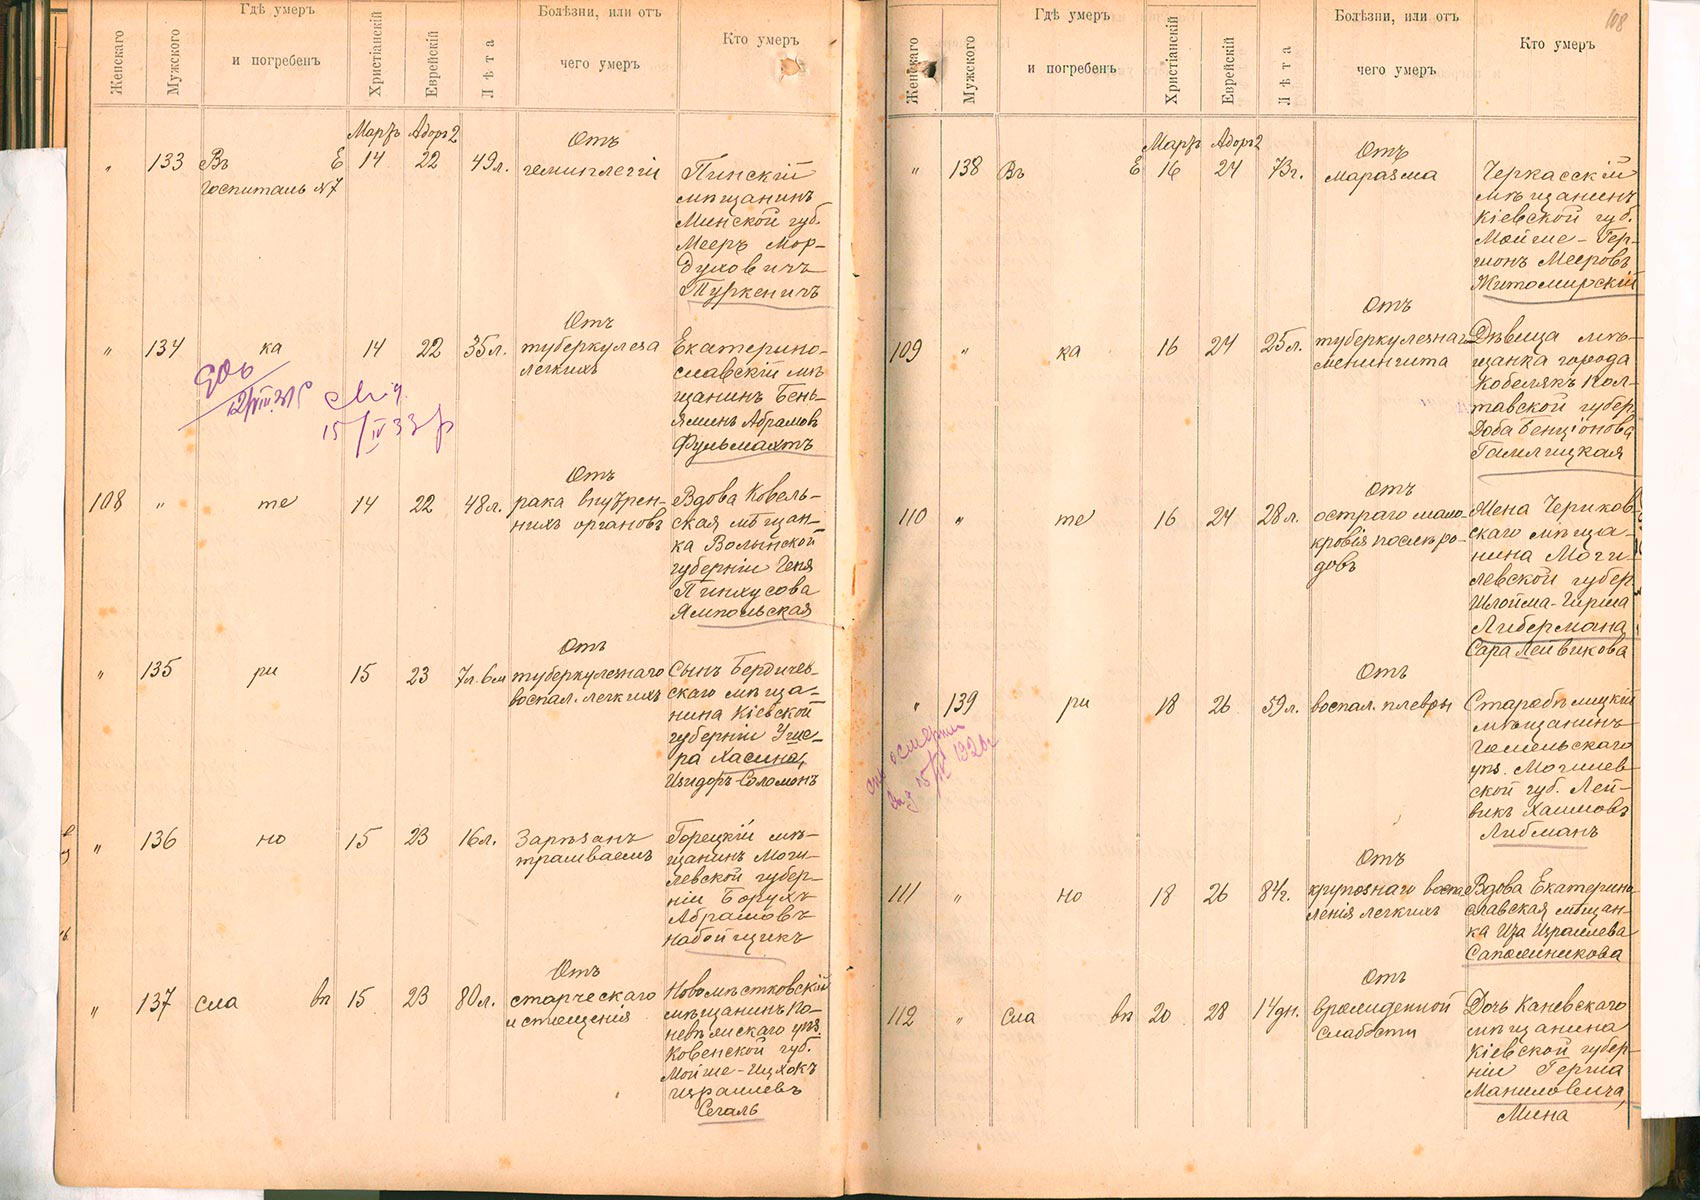 Женскаго
Мужского
Гдѣ умеръ
и погребенъ
Христіанскій
Еврейскій
Лѣта
Болѣзни, или отъ
чего умеръ
Кто умеръ
Мартъ Адоръ 2
„ 133 Въ Е 14 22 49 л.
госпиталь №7
Отъ
гемиплегіи
Пинскій
мѣщанинъ
Минской губ.
Мееръ Мор-
духовичъ
Туркеничъ
„ 134 ка 14 22 35 л.
Отъ
туберкулеза
легкихъ
Екатерино-
славскій мѣ
щанинъ Бень-
яминъ Абрамов
Фульмахтъ
15/IV 33 р
108 „ те 14 22 48 л.
Отъ
рака внутрен-
нихъ органовъ
Вдова Ковель-
ская мѣщан-
ка Волынской
губерніи Геня
Пинхусова
Ямпольская
„ 135 ри 15 23 7 л. 6 м
Отъ
туберкулезнаго
воспал. легкихъ
Сынъ Бердичев-
скаго мѣща-
нина Кіевской
губерніи Уше-
ра Хасина,
Изидоръ-Соломонъ
„ 136 но 15 23 16 л.
Зарѣзанъ
трамваемъ
Горецкій мѣ-
щанинъ Моги-
левской губер-
ніи Борухъ
Абрамовъ
Набойщикъ
„ 137 сла вп 15 23 80 л.
Отъ
старческаго
истощенія
Новомѣстковскій
мѣщанинъ По-
невѣжскаго уѣз.
Ковенской губ.
Мойше-Ицхокъ
Израилевъ
Сегаль
108
Женскаго
Мужского
Гдѣ умеръ
и погребенъ
Христіанскій
Еврейскій
Лѣта
Болѣзни, или отъ
чего умеръ
Кто умеръ
Мартъ Адоръ 2
„ 138 Въ Е 16 24 73 г.
Отъ
маразма
Черкасскій
мѣщанинъ
Кіевской губ.
Мойше-Гер-
шонъ Мееровъ
Житомирскій
109 „ ка 16 24 25 л.
Отъ
туберкулезнаго
менингита
Дѣвица мѣ-
щанка города
Кобелякъ Пол-
тавской губер.
Доба Бенціонова
110 „ те 16 24 28 л.
Отъ
остраго мало-
кровія послѣ ро-
довъ
Жена Чериков
скаго мѣща-
нина Моги
левской губер.
Шлойма-Гирша
Либермана
Сара Лейвикова
„ 139 ри 18 26 59 л.
Отъ
воспал. плевры
Старобѣлицкій
мѣщанинъ
Гомельскаго
уѣз. Могилев
ской губ. Лей-
викъ Хаимовъ
Либманъ
111 „ но 18 26 84 г.
Отъ
крупознаго воспа
ленія легкихъ
Вдова Екатерино
славская мѣщан-
ка Иза Израилева
Сапожникова
112 „ сла вп 20 28 14 дн.
Отъ
врожденной
слабости
Дочь Каневскаго
мѣщанина
Кіевской губер-
ніи Герша
Маниловича,
Мина